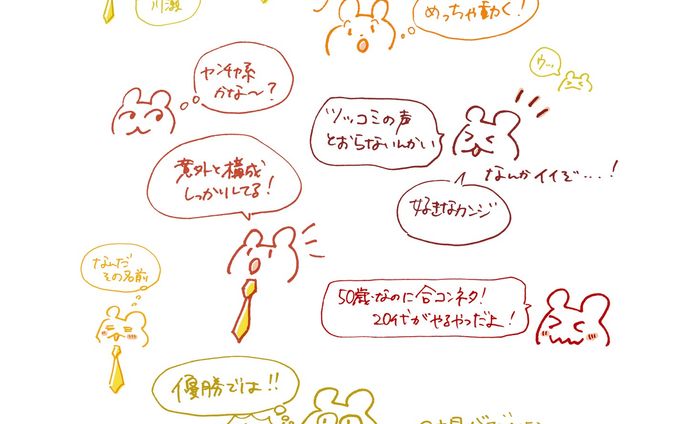 川瀬
めっちゃ動く!
ウッ…
ヤンチャ系
かな〜?
ツッコミの声
とおらないんかい
なんかイイぞ…!
好きなカンジ
意外と構成
しっかりしてる!
なんだ
その名前
50歳なのに合コンネタ!
20代がやるやつだよ!
優勝では!!